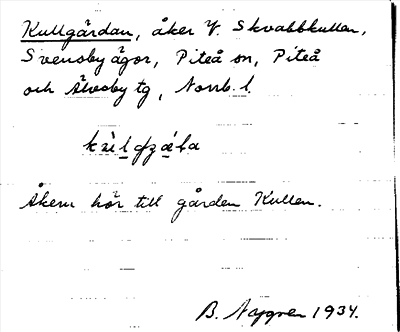 Kullgärdan, åker V. Skvabbkullen,
Svensby ägor, Piteå sn, Piteå
och Älvsby tg, Norrb. l.
Åkern hör till gården Kullen.
B. 1934.